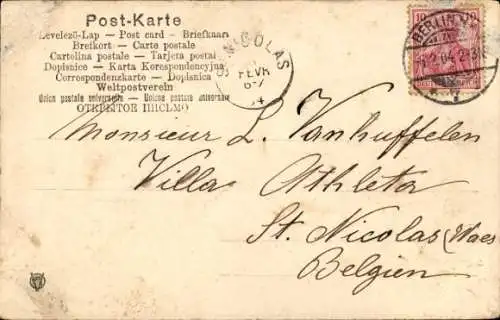 Post-Karte
Levelező-Lap — Post card — Briefkaart
Brefkort - Carte postale
Cartolina postale — Tarjeta postal
Dopisnice - Karta Korespondencyjna
Correspondenzkarte - Dopisnica
Weltpostverein
Union postale universelle — Unione postale universale
ОТКРЫТОЕ ПИСЬМО
NICOLAS
FEVR
6-7
BERLIN
2.04
10
Monsieur L. Vanhuffelen
Villa Athleta
St. Nicolas (Waes
Belgien